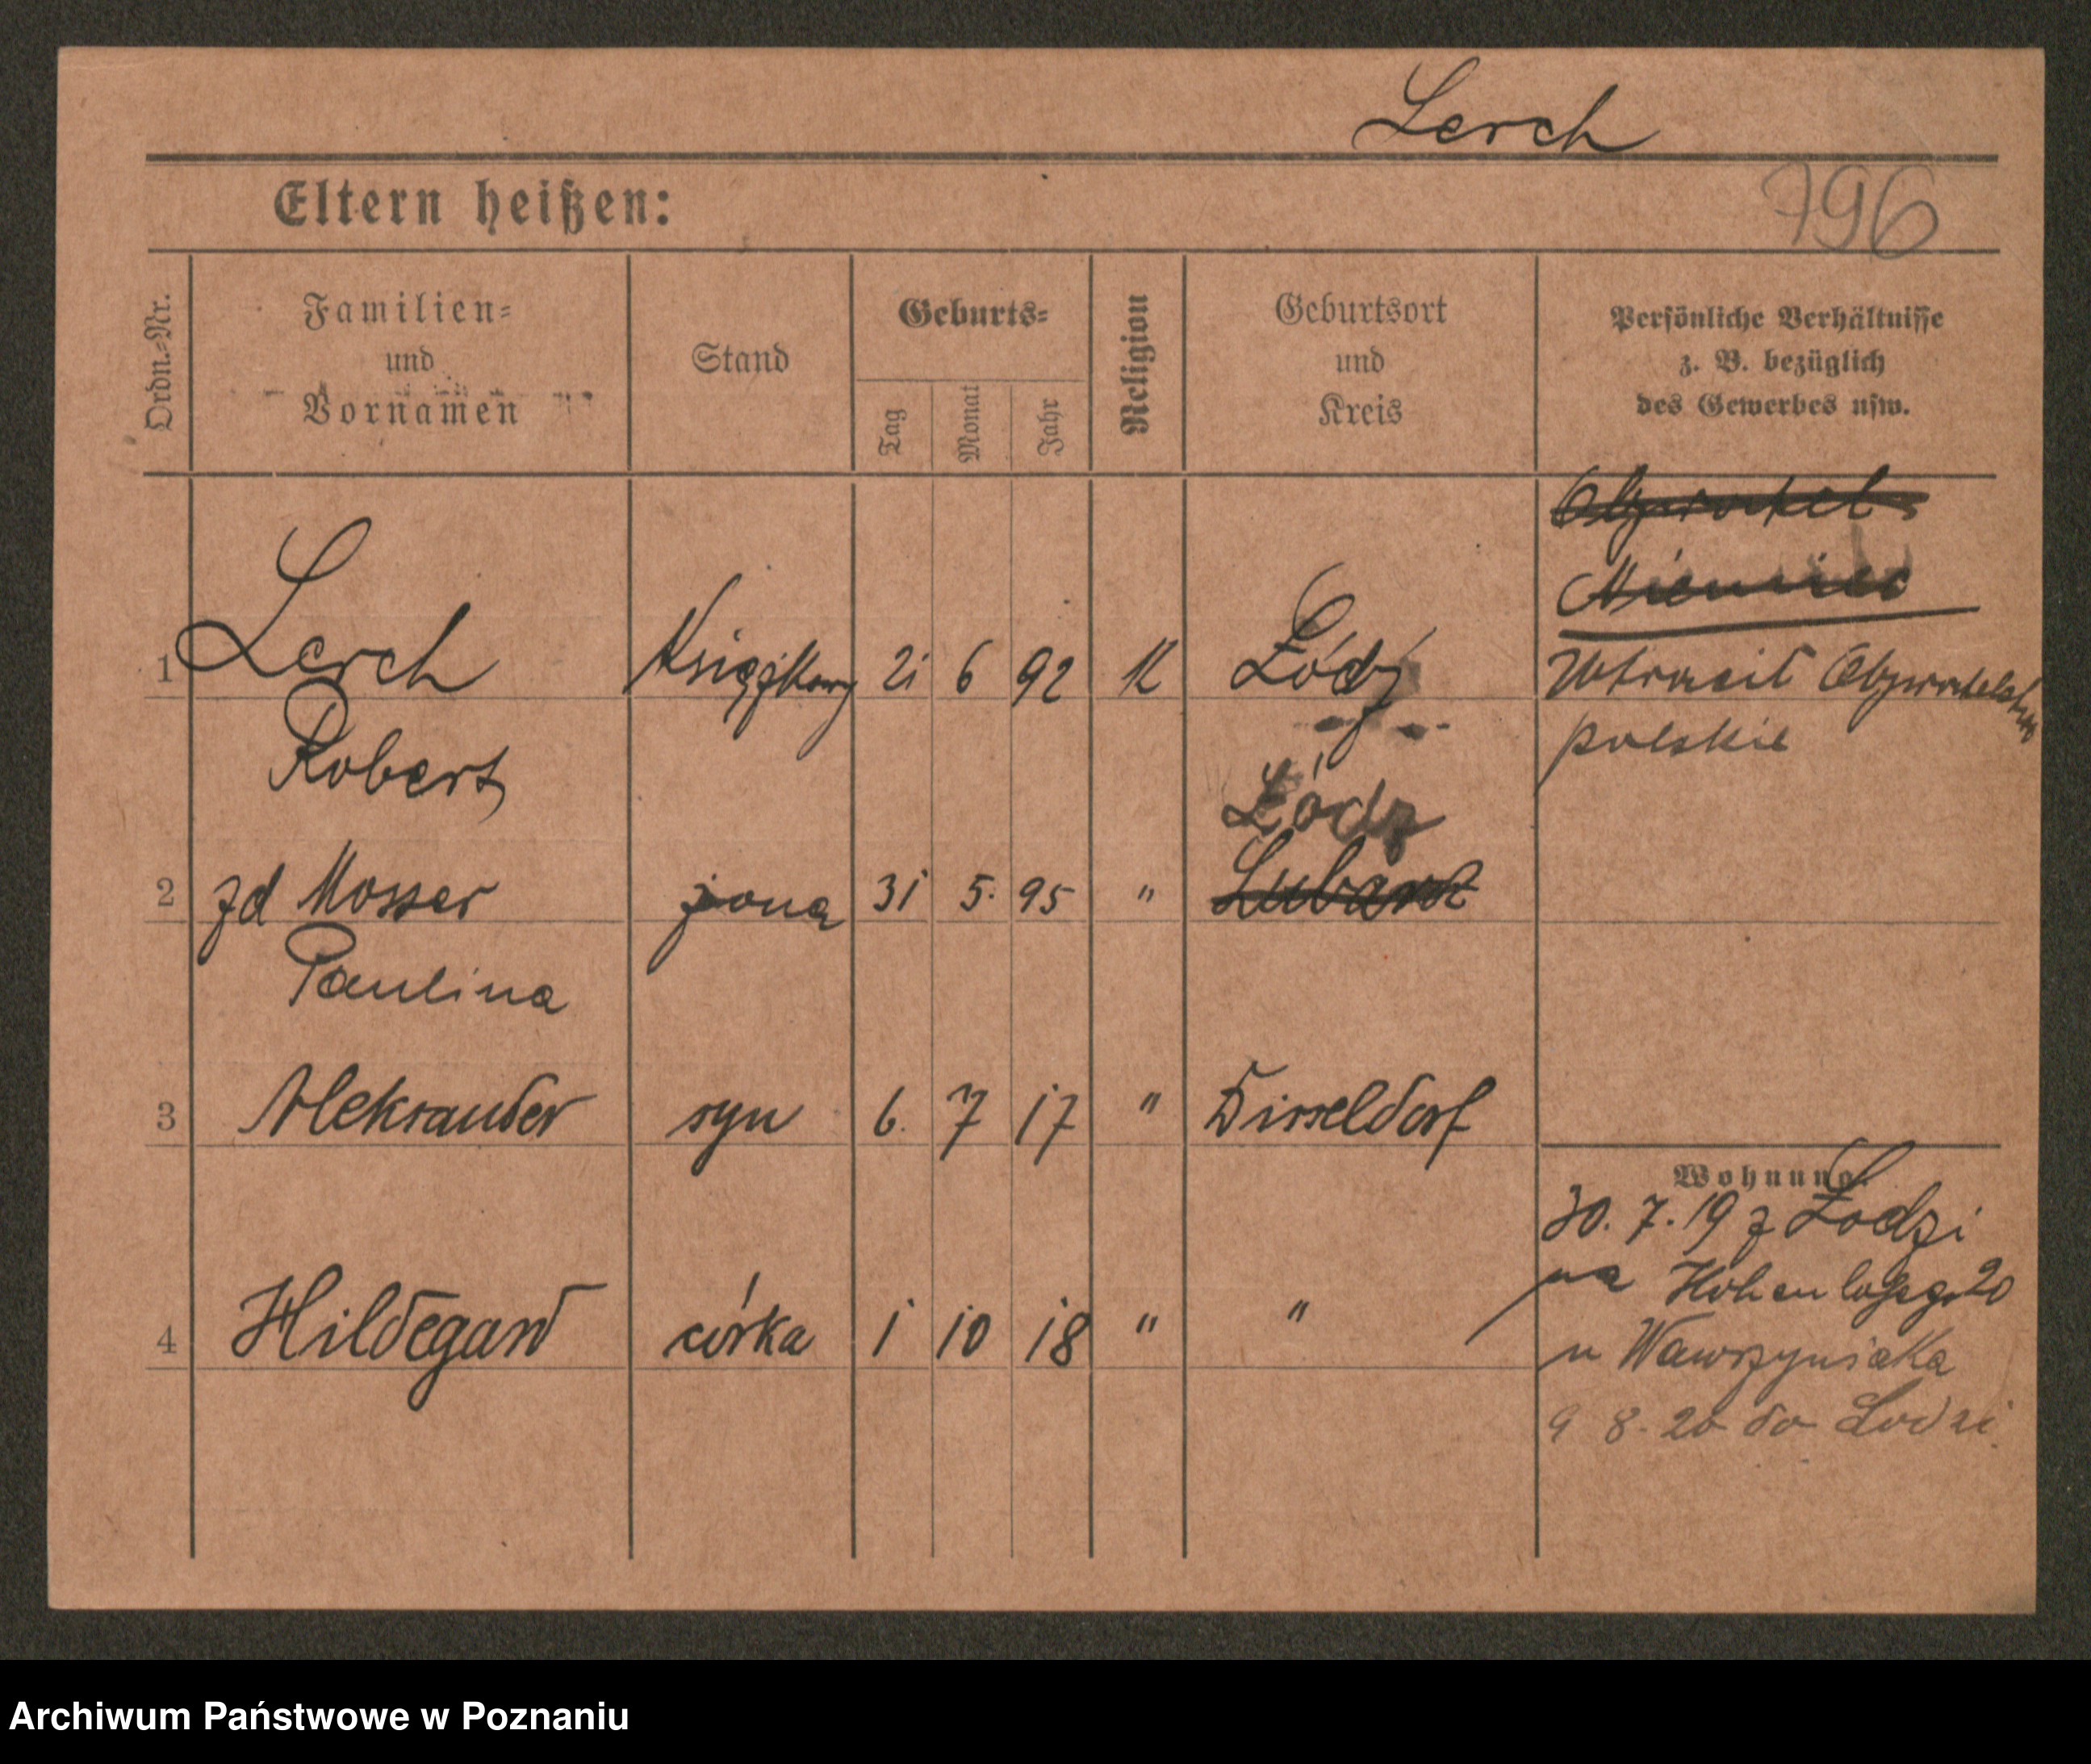 Lerch
796
Eltern heißen:
Ordn.-Nr.
Familien-
und
Vornamen
Stand
Geburts-
Tag
Monat
Jahr
Religion
Geburtsort
und
Kreis
Persönliche Verhältnisse
z. B. bezüglich
des Gewerbes usw.
Obywatel
Niemiec
1 Lerch Książkowy 21 6 92 K Łódź Utracił Obywatelstwo
Robert polskie
Łódz
2 zd Mosser żona 31 5. 95 "
Paulina
3 Aleksander syn 6. 7 17 " Disseldorf
Wohnung.
30. 7. 19 z Łodzi
na Hohenloheg. 20
4 Hildegard córka 1 10 18 " " u Wawrzyniaka
9 8. 20 do Lodzi.
Archiwum Państwowe w Poznaniu